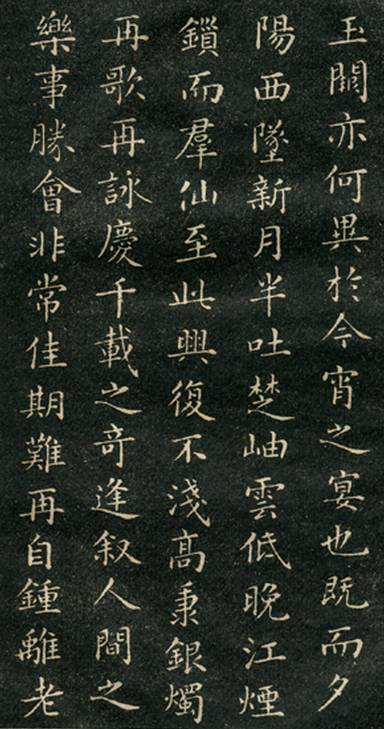 玉闕亦何異於今宵之宴也既而夕
陽西墜新月半吐楚岫雲低晚江煙
鎖而羣仙至此興復不淺高秉銀燭
再歌再詠慶千載之奇逢叙人間之
樂事勝會非常佳期難再自鍾離老